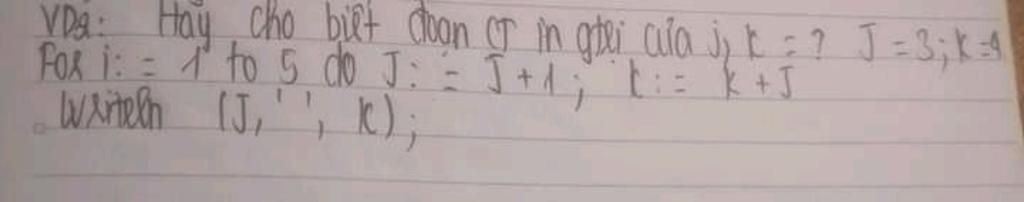 VDa: Hãy cho biết đoạn CT in gtrị của j, k = ? J = 3; k = 9
For i: = 1 to 5 do J: = J + 1; k: = k + J
Writeln (J, ' ', k);